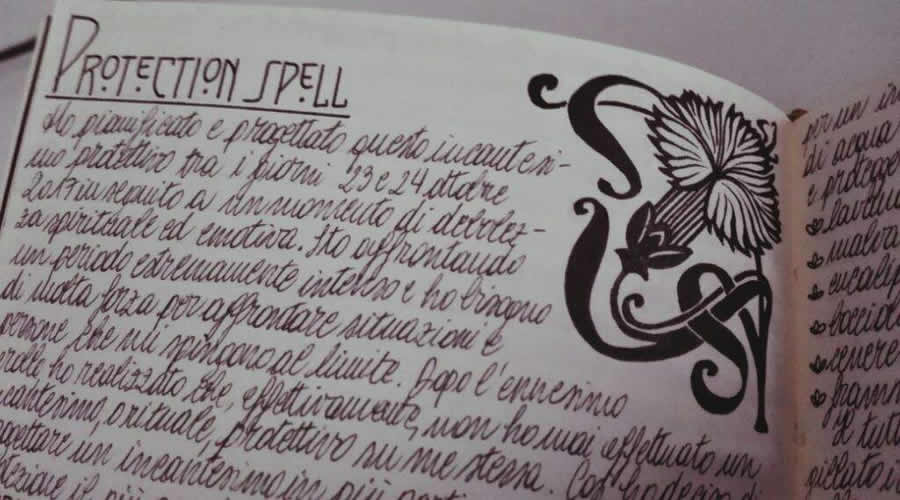 PROTECTION SPELL
Ho pianificato e progettato questo incantesi-
mo protettivo tra i giorni 23 e 24 ottobre
2017 in seguito a un momento di debolez-
za spirituale ed emotiva. Sto affrontando
un periodo estremamente intenso e ho bisogno
di molta forza per affrontare situazioni e
persone che mi spingono al limite. Dopo l'ennesimo
crollo ho realizzato che, effettivamente, non ho mai effettuato un
incantesimo, o rituale, protettivo su me stessa. Così ho deciso
progettare un incantesimo in più parti
per un in
di acqua
e protegge
lavan
malva
eucalip
boccioli
cenere
hamm
Il tutt
sigillato i